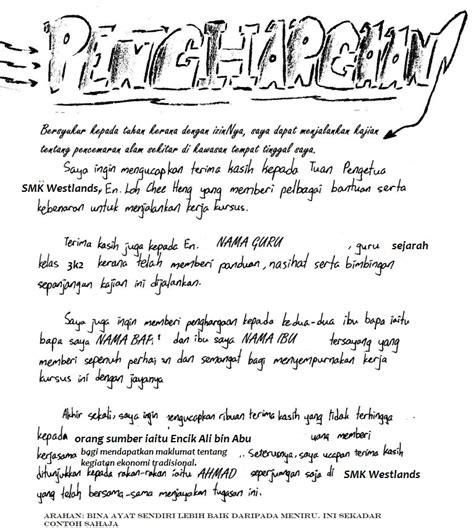 PENGHARGAAN
Bersyukur kepada tuhan kerana dengan izinNya, saya dapat menjalankan kajian
tentang pencemaran alam sekitar di kawasan tempat tinggal saya.
Saya ingin mengucapkan terima kasih kepada Tuan Pengetua
SMK Westlands, En. Loh Chee Heng yang memberi pelbagai bantuan serta
kebenaran untuk menjalankan kerja kursus.
Terima kasih juga kepada En. NAMA GURU , guru sejarah
kelas 3k2 kerana telah memberi panduan, nasihat serta bimbingan
sepanjangan kajian ini dijalankan.
Saya juga ingin memberi penghargaan kepada kedua-dua ibu bapa iaitu
bapa saya NAMA dan ibu saya NAMA IBU tersayang yang
memberi sepenuh dan semangat bagi menyempurnakan kerja
kursus ini dengan jayanya
Akhir sekali, saya ingin mengucapkan ribuan terima kasih yang tidak terhingga
kepada orang sumber iaitu Encik Ali bin Abu yang memberi
kerjasama bagi mendapatkan maklumat tentang
kegiatan ekonomi tradisional. . Seterusnya, saya ucapan terima kasih
ditunjukkan kepada rakan-rakan iaitu AHMAD seperjuangan saya di SMK Westlands
yang telah bersama-sama menjayakan tugasan ini.
ARAHAN: BINA AYAT SENDIRI LEBIH BAIK DARIPADA MENIRU. INI SEKADAR
CONTOH SAHAJA